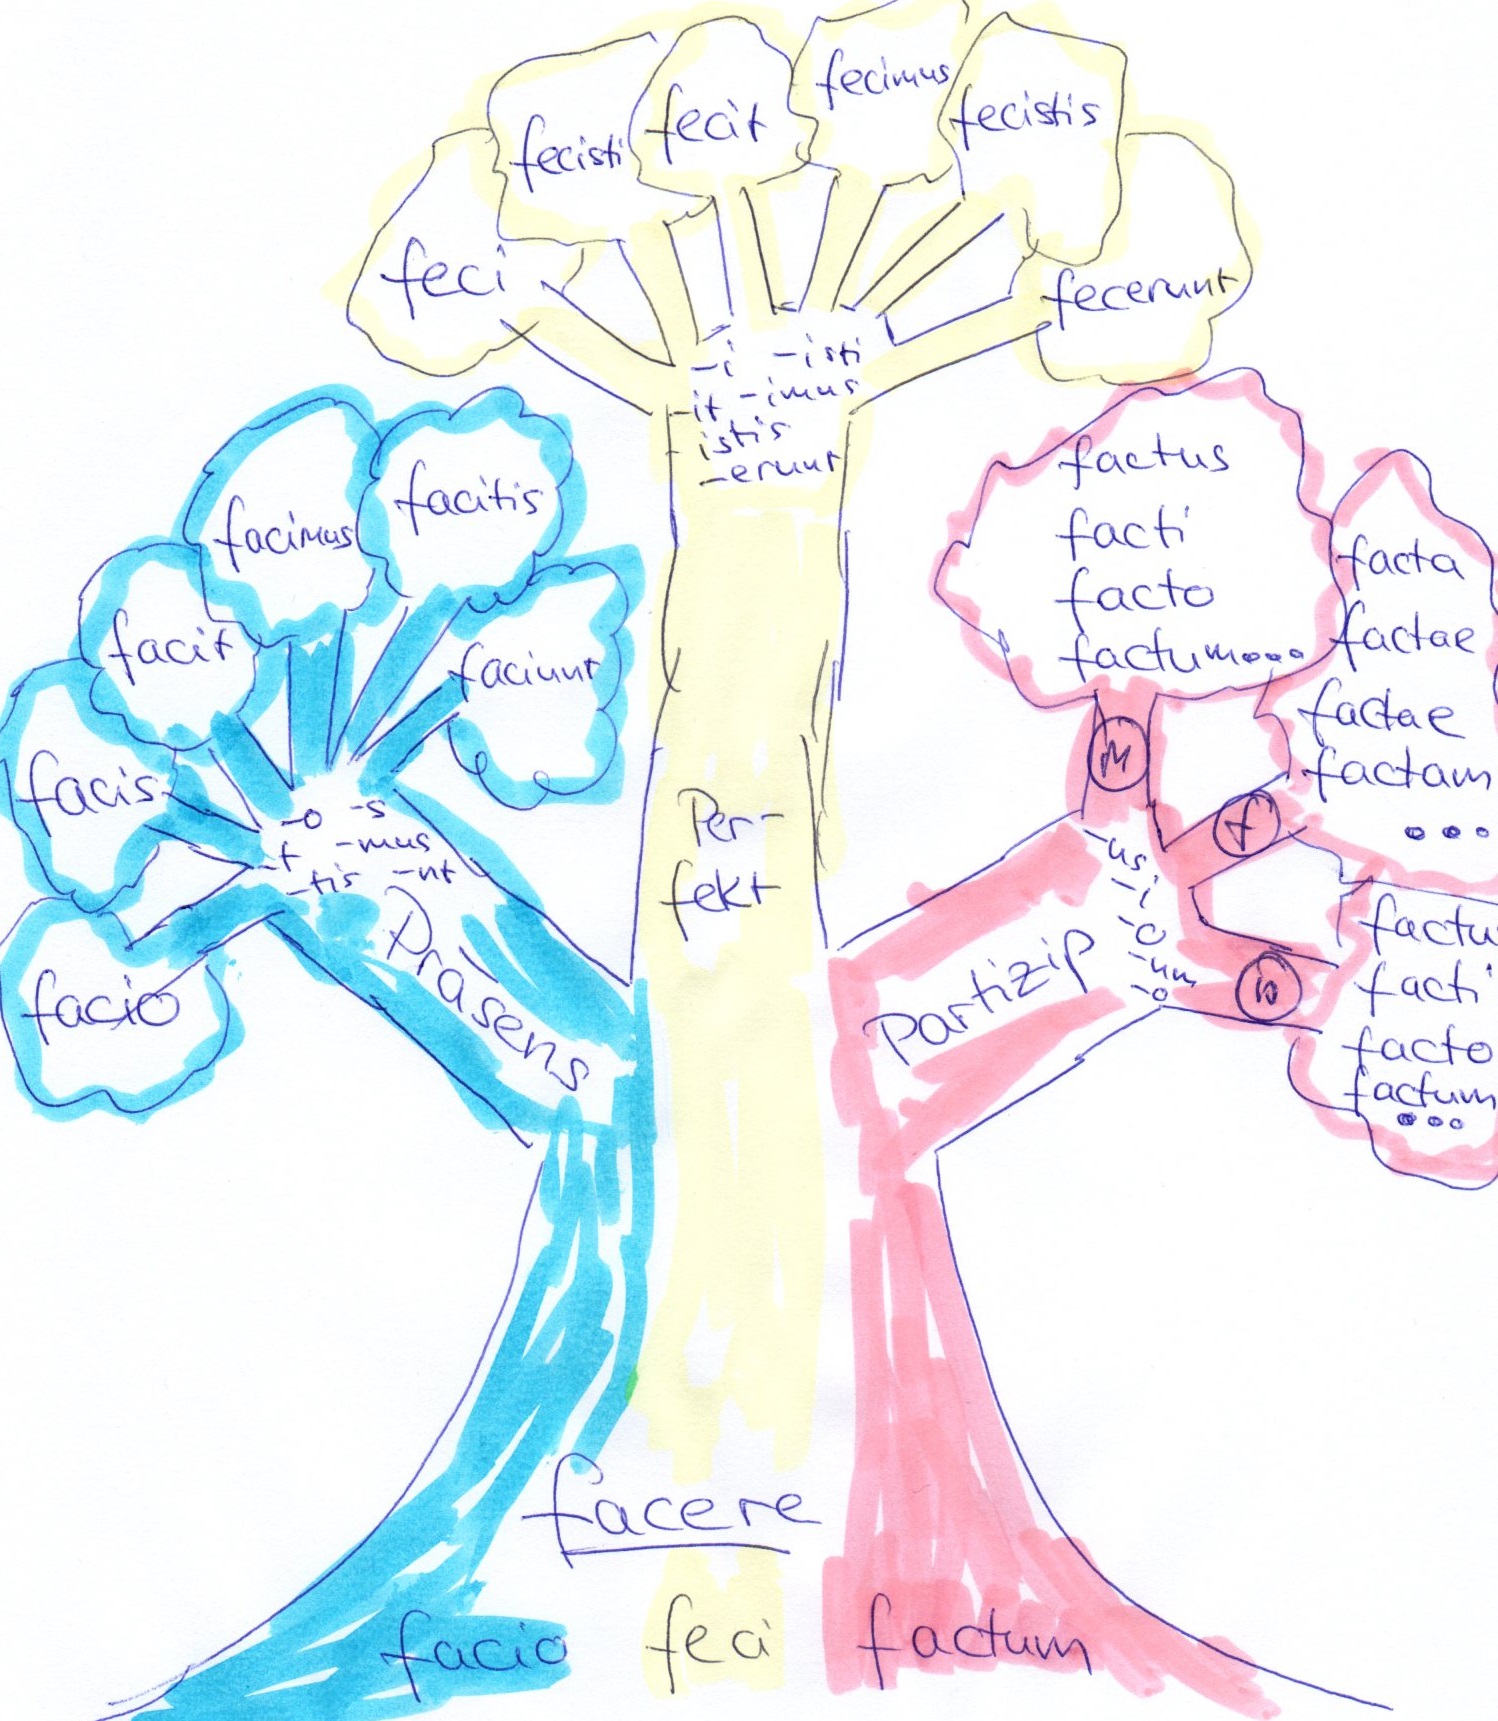 fecimus
fecit
fecistis
fecisti
feci
fecerunt
-i -isti
-it -imus
istis
-erunt
facitis
facimus
facit
faciunt
facis
facio
-o -s
-t -mus
-tis -nt
Präsens
Per-
fekt
factus
facti
facto
factum...
facta
factae
factae
factam
...
M
f
-us
-i
-o
-um
-o
Partizip
n
factu
facti
facto
factum
...
facere
facio
feci
factum